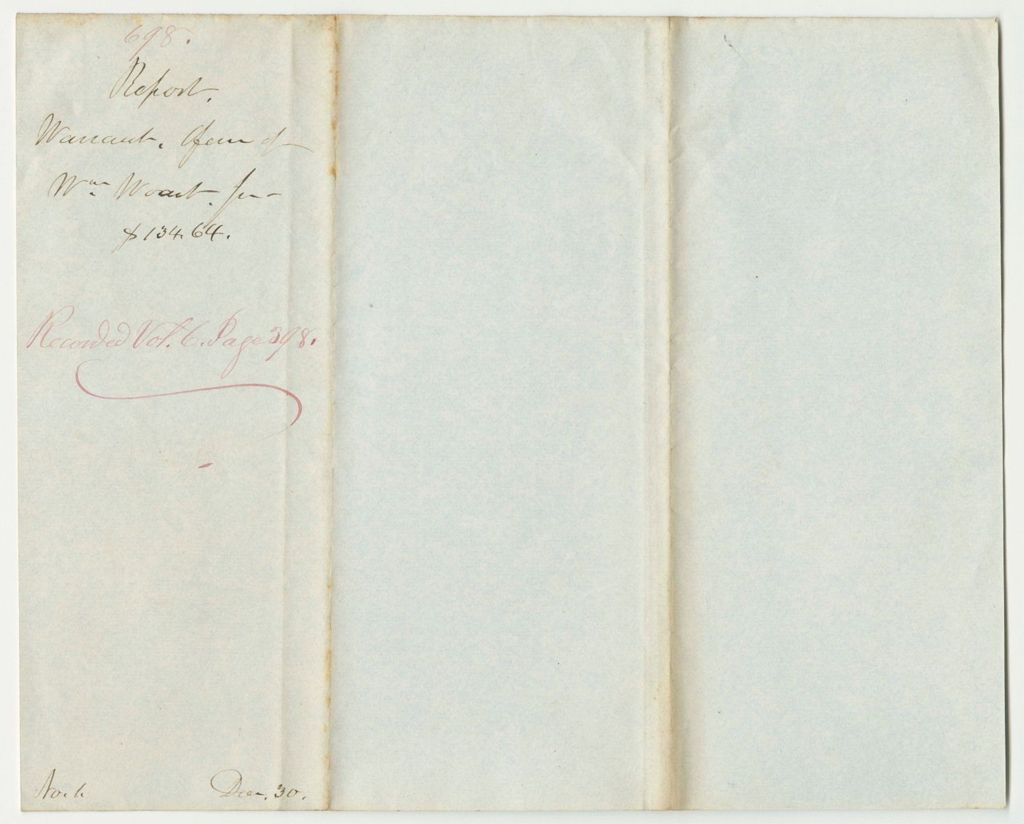 698.
Report.
Warrant. favor of
Wm Woart. Jr
$134.64.
Recorded Vol. 6. Page 398.
Dec. 30.